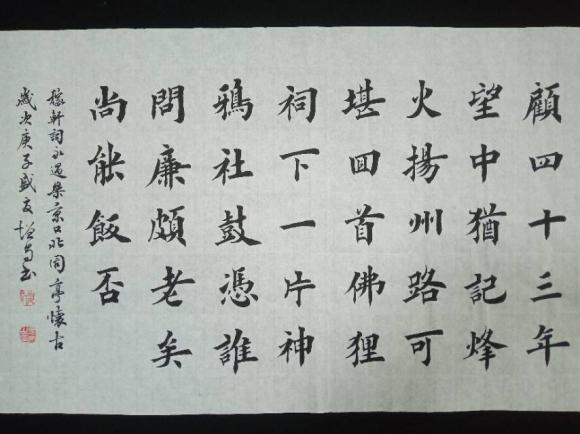 顧四十三年
望中猶記烽
火揚州路可
堪囬首佛狸
祠下一片神
鴉社鼓憑誰
問廉頗老矣
尚能飯否
稼軒詞永遇樂京口北固亭懷古
歲次庚子盛夏書